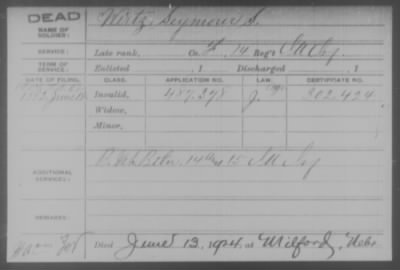 DEAD
NAME OF SOLDIER: Wirtz, Seymour S.
SERVICE: Late rank, Co. F, 14 Reg't
TERM OF SERVICE: Enlisted , 1 Discharged , 1
DATE OF FILING. CLASS. APPLICATION NO. LAW. CERTIFICATE NO.
1883 June Invalid, 487,278 J. 302,424
Widow,
Minor,
ADDITIONAL SERVICES: 14 15
REMARKS:
Died June 13, 1924, at Milford, Nebr.